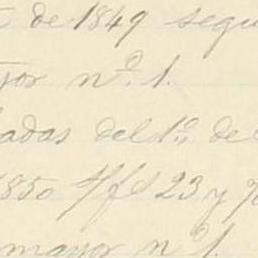 de 1849 segu
yor nº 1.
adas del 1º de
1850 s/fs 23 y
mayor nº 1.